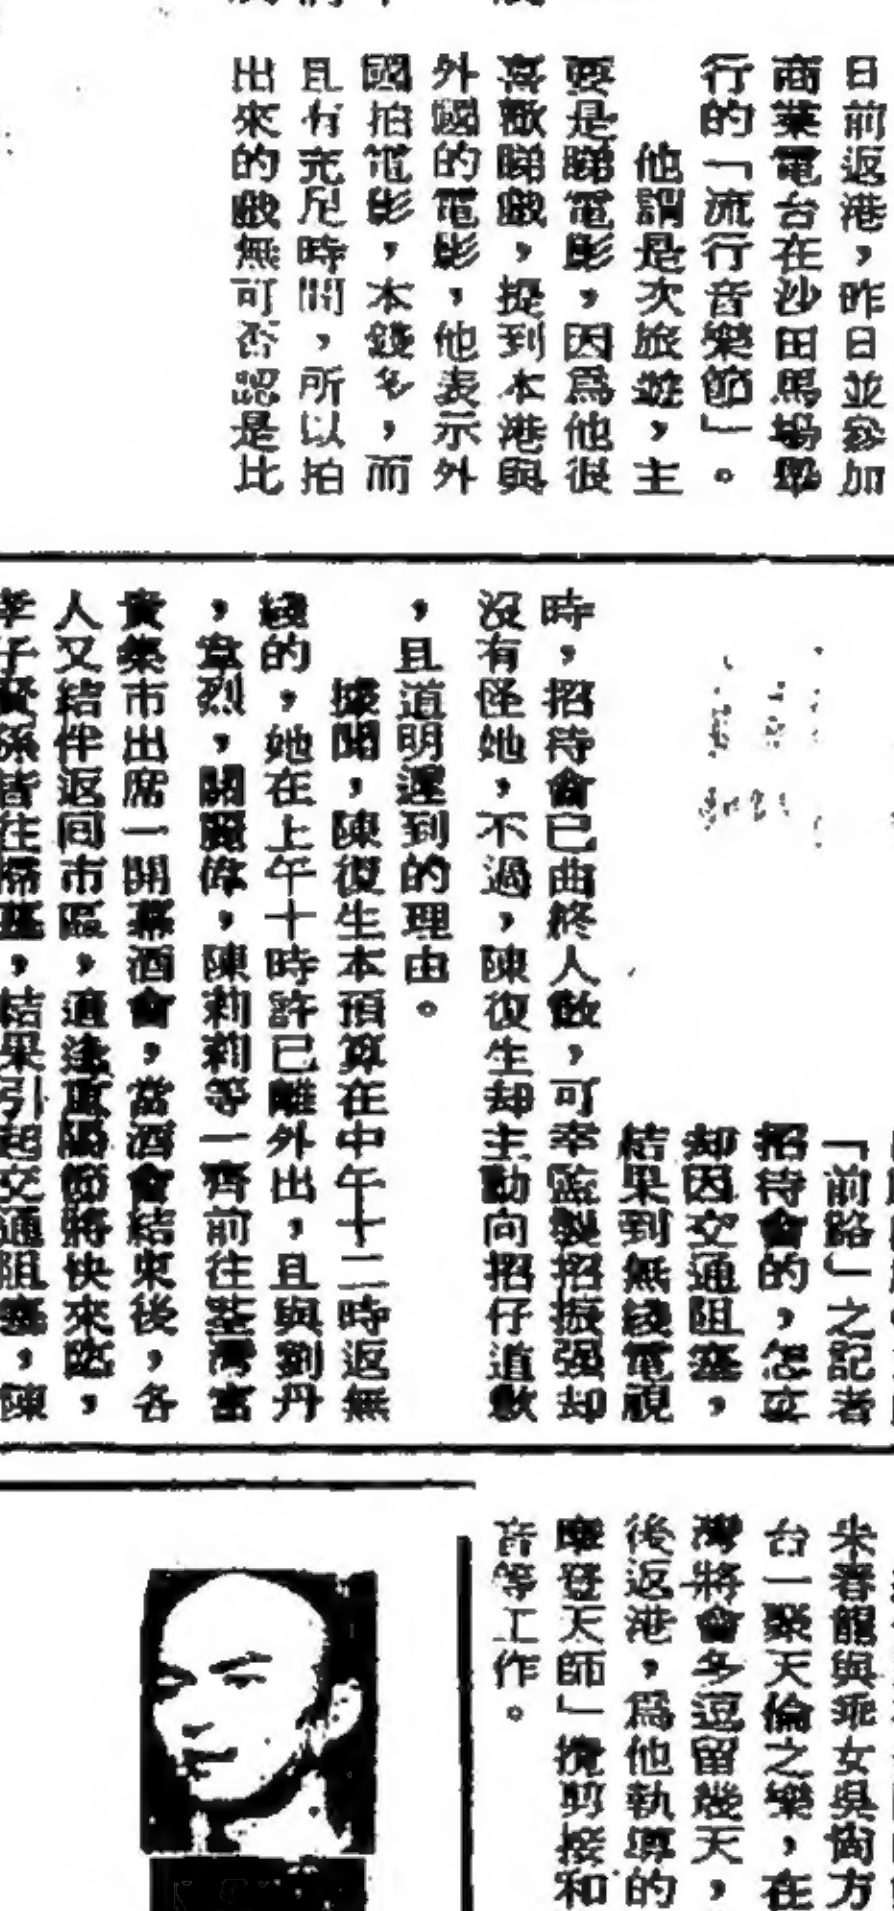 日前返港，昨日並參加
商業電台在沙田馬場舉
行的「流行音樂節」。
他謂是次旅遊，主
要是睇電影，因爲他很
喜歡睇戲，提到本港與
外國的電影，他表示外
國拍電影，本錢多，而
且有充足時間，所以拍
出來的戲無可否認是比
「前路」之記者
招待會的，怎立
却因交通阻塞，
結果到無綫電視
時，招待會已曲終人散，可幸監製招振强却
沒有怪她，不過，陳復生却主動向招仔道歉
，且道明遲到的理由。
據聞，陳復生本預算在中午十二時返無
綫的，她在上午十時許已離外出，且與劉丹
，韋烈，關聰偉，陳莉莉等一齊前往荃灣富
貴集市出席一開幕酒會，當酒會結束後，各
人又結伴返回市區，適逢重陽節將快來臨，
孝子賢孫皆往掃墓，結果引起交通阻塞，陳
朱春龍與乖女吳尚方
台一聚天倫之樂，在
灣將會多逗留幾天，
後返港，爲他執導的
摩登天師」攪剪接和
音等工作。